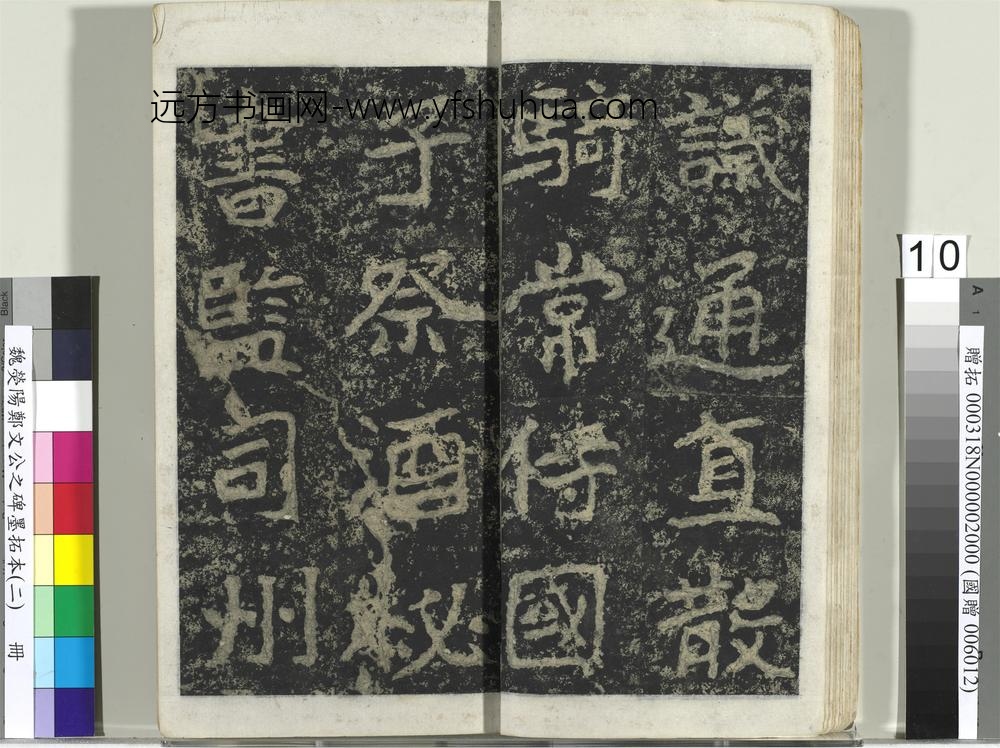 远方书画网-www.yfshuhua.com
議通直散
騎常侍國
子祭酒秘
書監司州
魏滎陽鄭文公之碑墨拓本(二) 冊
Black
10
A
1
贈拓 000318N000002000 (國贈 006012)